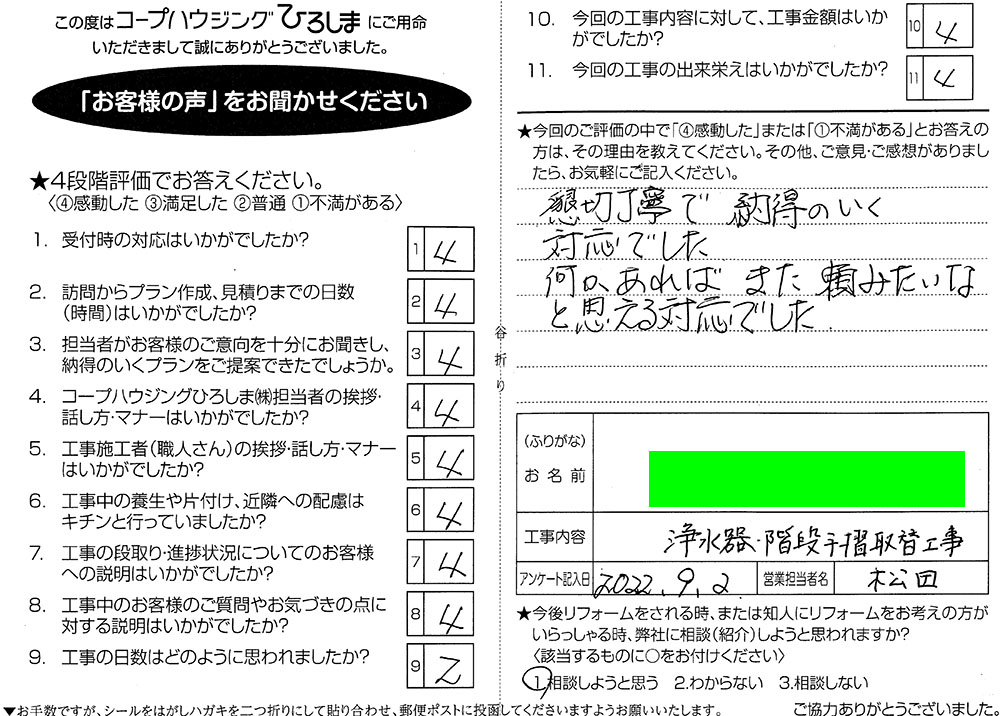 この度はコープハウジングひろしまにご用命
いただきまして誠にありがとうございました。
「お客様の声」をお聞かせください
★4段階評価でお答えください。
〈④感動した ③満足した ②普通 ①不満がある〉
1. 受付時の対応はいかがでしたか? 1 4
2. 訪問からプラン作成、見積りまでの日数
(時間)はいかがでしたか? 2 4
3. 担当者がお客様のご意向を十分にお聞きし、
納得のいくプランをご提案できたでしょうか。 3 4
4. コープハウジングひろしま㈱担当者の挨拶・
話し方・マナーはいかがでしたか? 4 4
5. 工事施工者(職人さん)の挨拶・話し方・マナー
はいかがでしたか? 5 4
6. 工事中の養生や片付け、近隣への配慮は
キチンと行っていましたか? 6 4
7. 工事の段取り・進捗状況についてのお客様
への説明はいかがでしたか? 7 4
8. 工事中のお客様のご質問やお気づきの点に
対する説明はいかがでしたか? 8 4
9. 工事の日数はどのように思われましたか? 9 2
▼お手数ですが、シールをはがしハガキを二つ折りにして貼り合わせ、郵便ポストに投函してくださいますようお願いいたします。
谷折り
10. 今回の工事内容に対して、工事金額はいか
がでしたか? 10 4
11. 今回の工事の出来栄えはいかがでしたか? 11 4
★今回のご評価の中で「④感動した」または「①不満がある」とお答えの
方は、その理由を教えてください。その他、ご意見・ご感想がありまし
たら、お気軽にご記入ください。
懇切丁寧で 納得のいく
対応でした
何かあれば また 頼みたいな
と思える対応でした.
(ふりがな)
お名前
工事内容 浄水器・階段手摺取替工事
アンケート記入日 2022.9.2 営業担当者名 松田
★今後リフォームをされる時、または知人にリフォームをお考えの方が
いらっしゃる時、弊社に相談(紹介)しようと思われますか?
〈該当するものに○をお付けください〉
1.相談しようと思う 2.わからない 3.相談しない
ご協力ありがとうございました。